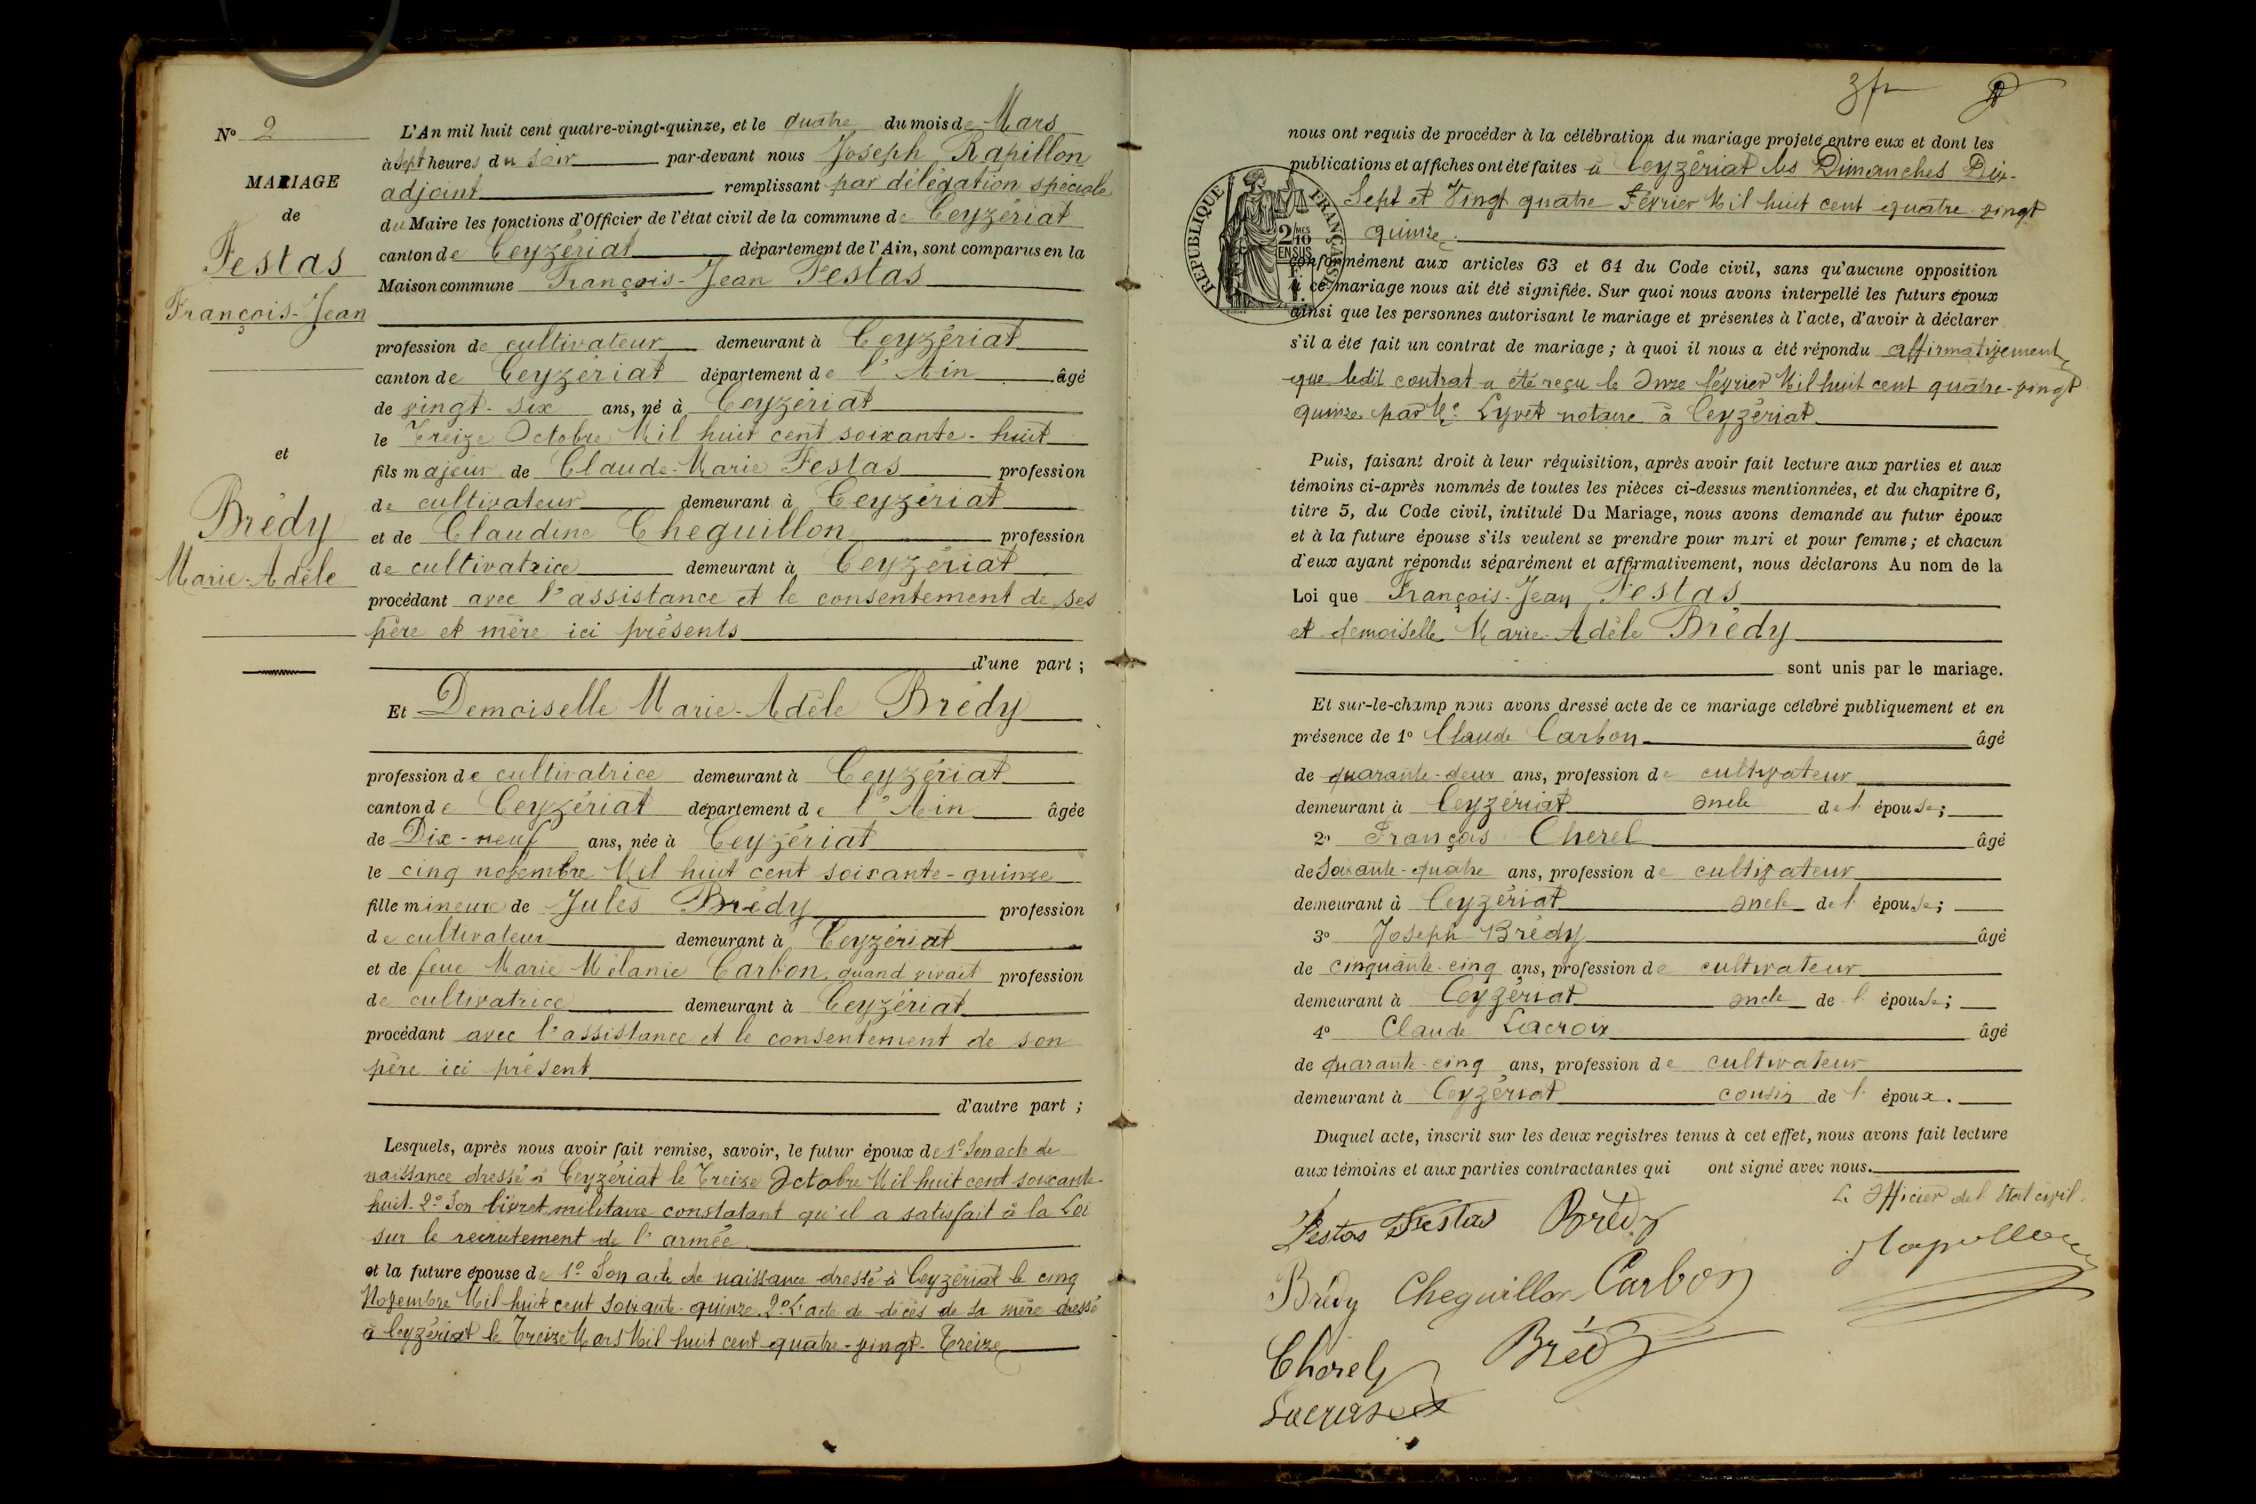 N° 2
MARIAGE
de
Festas
François-Jean
et
Brédy
Marie-Adèle
L'An mil huit cent quatre-vingt-quinze, et le quatre du mois de Mars
à sept heures du soir par-devant nous Joseph Rapillon
adjoint remplissant par délégation spéciale
du Maire les fonctions d'Officier de l'état civil de la commune de Ceyzériat
canton de Ceyzériat département de l'Ain, sont comparus en la
Maison commune François-Jean Festas
profession de cultivateur demeurant à Ceyzériat
canton de Ceyzériat département de l'Ain âgé
de vingt-six ans, né à Ceyzériat
le Treize Octobre Mil huit cent soixante-huit
fils majeur de Claude-Marie Festas profession
de cultivateur demeurant à Ceyzériat
et de Claudine Cheguillon profession
de cultivatrice demeurant à Ceyzériat
procédant avec l'assistance et le consentement de ses
père et mère ici présents
d'une part ;
Et Demoiselle Marie-Adèle Brédy
profession de cultivatrice demeurant à Ceyzériat
canton de Ceyzériat département de l'Ain âgée
de Dix-neuf ans, née à Ceyzériat
le cinq novembre Mil huit cent soixante-quinze
fille mineure de Jules Brédy profession
de cultivateur demeurant à Ceyzériat
et de feue Marie Mélanie Carbon, quand vivait profession
de cultivatrice demeurant à Ceyzériat
procédant avec l'assistance et le consentement de son
père ici présent
d'autre part ;
Lesquels, après nous avoir fait remise, savoir, le futur époux de 1° Son acte de
naissance dressé à Ceyzériat le Treize Octobre Mil huit cent soixante-
huit. 2° Son livret militaire constatant qu'il a satisfait à la Loi
sur le recrutement de l'armée.
et la future épouse de 1° Son acte de naissance dressé à Ceyzériat le cinq
Novembre Mil huit cent soixante-quinze. 2° L'acte de décès de sa mère dressé
à Ceyzériat le Treize Mars Mil huit cent quatre-vingt-Treize
3 fr
nous ont requis de procéder à la célébration du mariage projeté entre eux et dont les
publications et affiches ont été faites à Ceyzériat les Dimanches Dix-
Sept et Vingt quatre Février Mil huit cent quatre-vingt
quinze.
RÉPUBLIQUE FRANÇAISE
2 MES
10
EN SUS
conformément aux articles 63 et 64 du Code civil, sans qu'aucune opposition
à ce mariage nous ait été signifiée. Sur quoi nous avons interpellé les futurs époux
ainsi que les personnes autorisant le mariage et présentes à l'acte, d'avoir à déclarer
s'il a été fait un contrat de mariage ; à quoi il nous a été répondu affirmativement
que ledit contrat a été reçu le Onze février Mil huit cent quatre-vingt
quinze par Me Lyvet notaire à Ceyzériat
Puis, faisant droit à leur réquisition, après avoir fait lecture aux parties et aux
témoins ci-après nommés de toutes les pièces ci-dessus mentionnées, et du chapitre 6,
titre 5, du Code civil, intitulé Du Mariage, nous avons demandé au futur époux
et à la future épouse s'ils veulent se prendre pour mari et pour femme ; et chacun
d'eux ayant répondu séparément et affirmativement, nous déclarons Au nom de la
Loi que François-Jean Festas
et demoiselle Marie-Adèle Brédy
sont unis par le mariage.
Et sur-le-champ nous avons dressé acte de ce mariage célébré publiquement et en
présence de 1° Claude Carbon âgé
de quarante-deux ans, profession de cultivateur
demeurant à Ceyzériat oncle de l' épouse ;
2° François Cherel âgé
de Soixante-quatre ans, profession de cultivateur
demeurant à Ceyzériat oncle de l' épouse ;
3° Joseph Brédy âgé
de cinquante-cinq ans, profession de cultivateur
demeurant à Ceyzériat oncle de l' épouse ;
4° Claude Lacroix âgé
de quarante-cinq ans, profession de cultivateur
demeurant à Ceyzériat cousin de l' époux.
Duquel acte, inscrit sur les deux registres tenus à cet effet, nous avons fait lecture
aux témoins et aux parties contractantes qui ont signé avec nous.
L'Officier de l'état civil.
Festas Festas Brédy
Brédy Cheguillon Carbon
Cherel Brédy